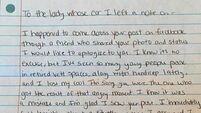 To the lady whose car I left a note on...
I happened to come across your post on facebook
through a friend who shared your photo and status
I would like to apologize to you. I know it's no
excuse, but I've seen so many young people pass
in parked with spaces along with handicap lately,
and I lost my cool. I'm sorry you were the one who
got the result of that angry moment. I know it was
a mistake and I'm glad I saw your post. I immediately